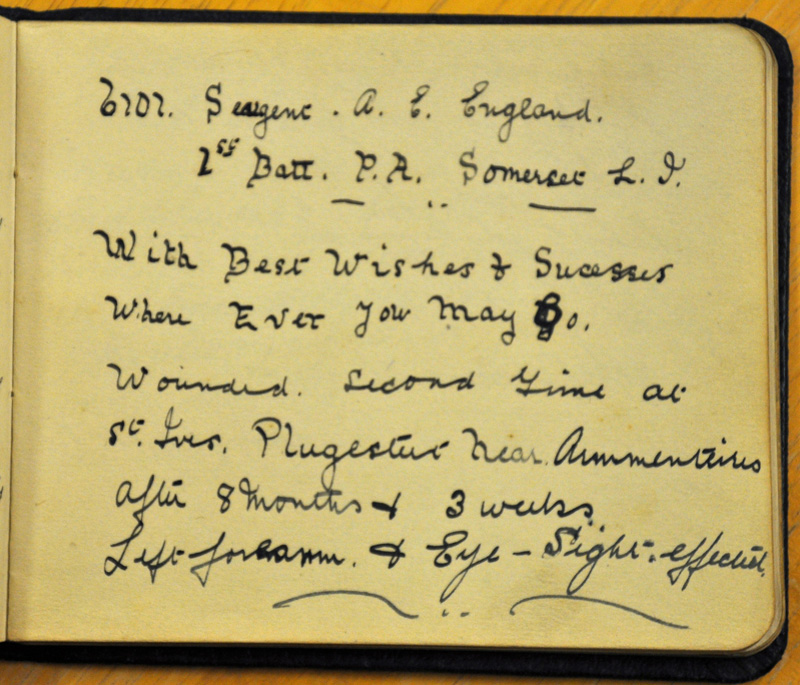 6707. Seargent. A. E. England.
1st Batt. P.A. Somerset L. I.
With Best Wishes & Sucesses
Where Ever You May Go.
Wounded. Second Time at
St. Ives. Plugestut Near Armmentires
After 8 Months & 3 weeks
Left forearm. & Eye - Sight. effected.